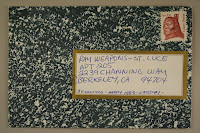 KIM WEAPONS - ST. LUCE
APT 205
2239 CHANNING WAY
BERKELEY, CA 94704